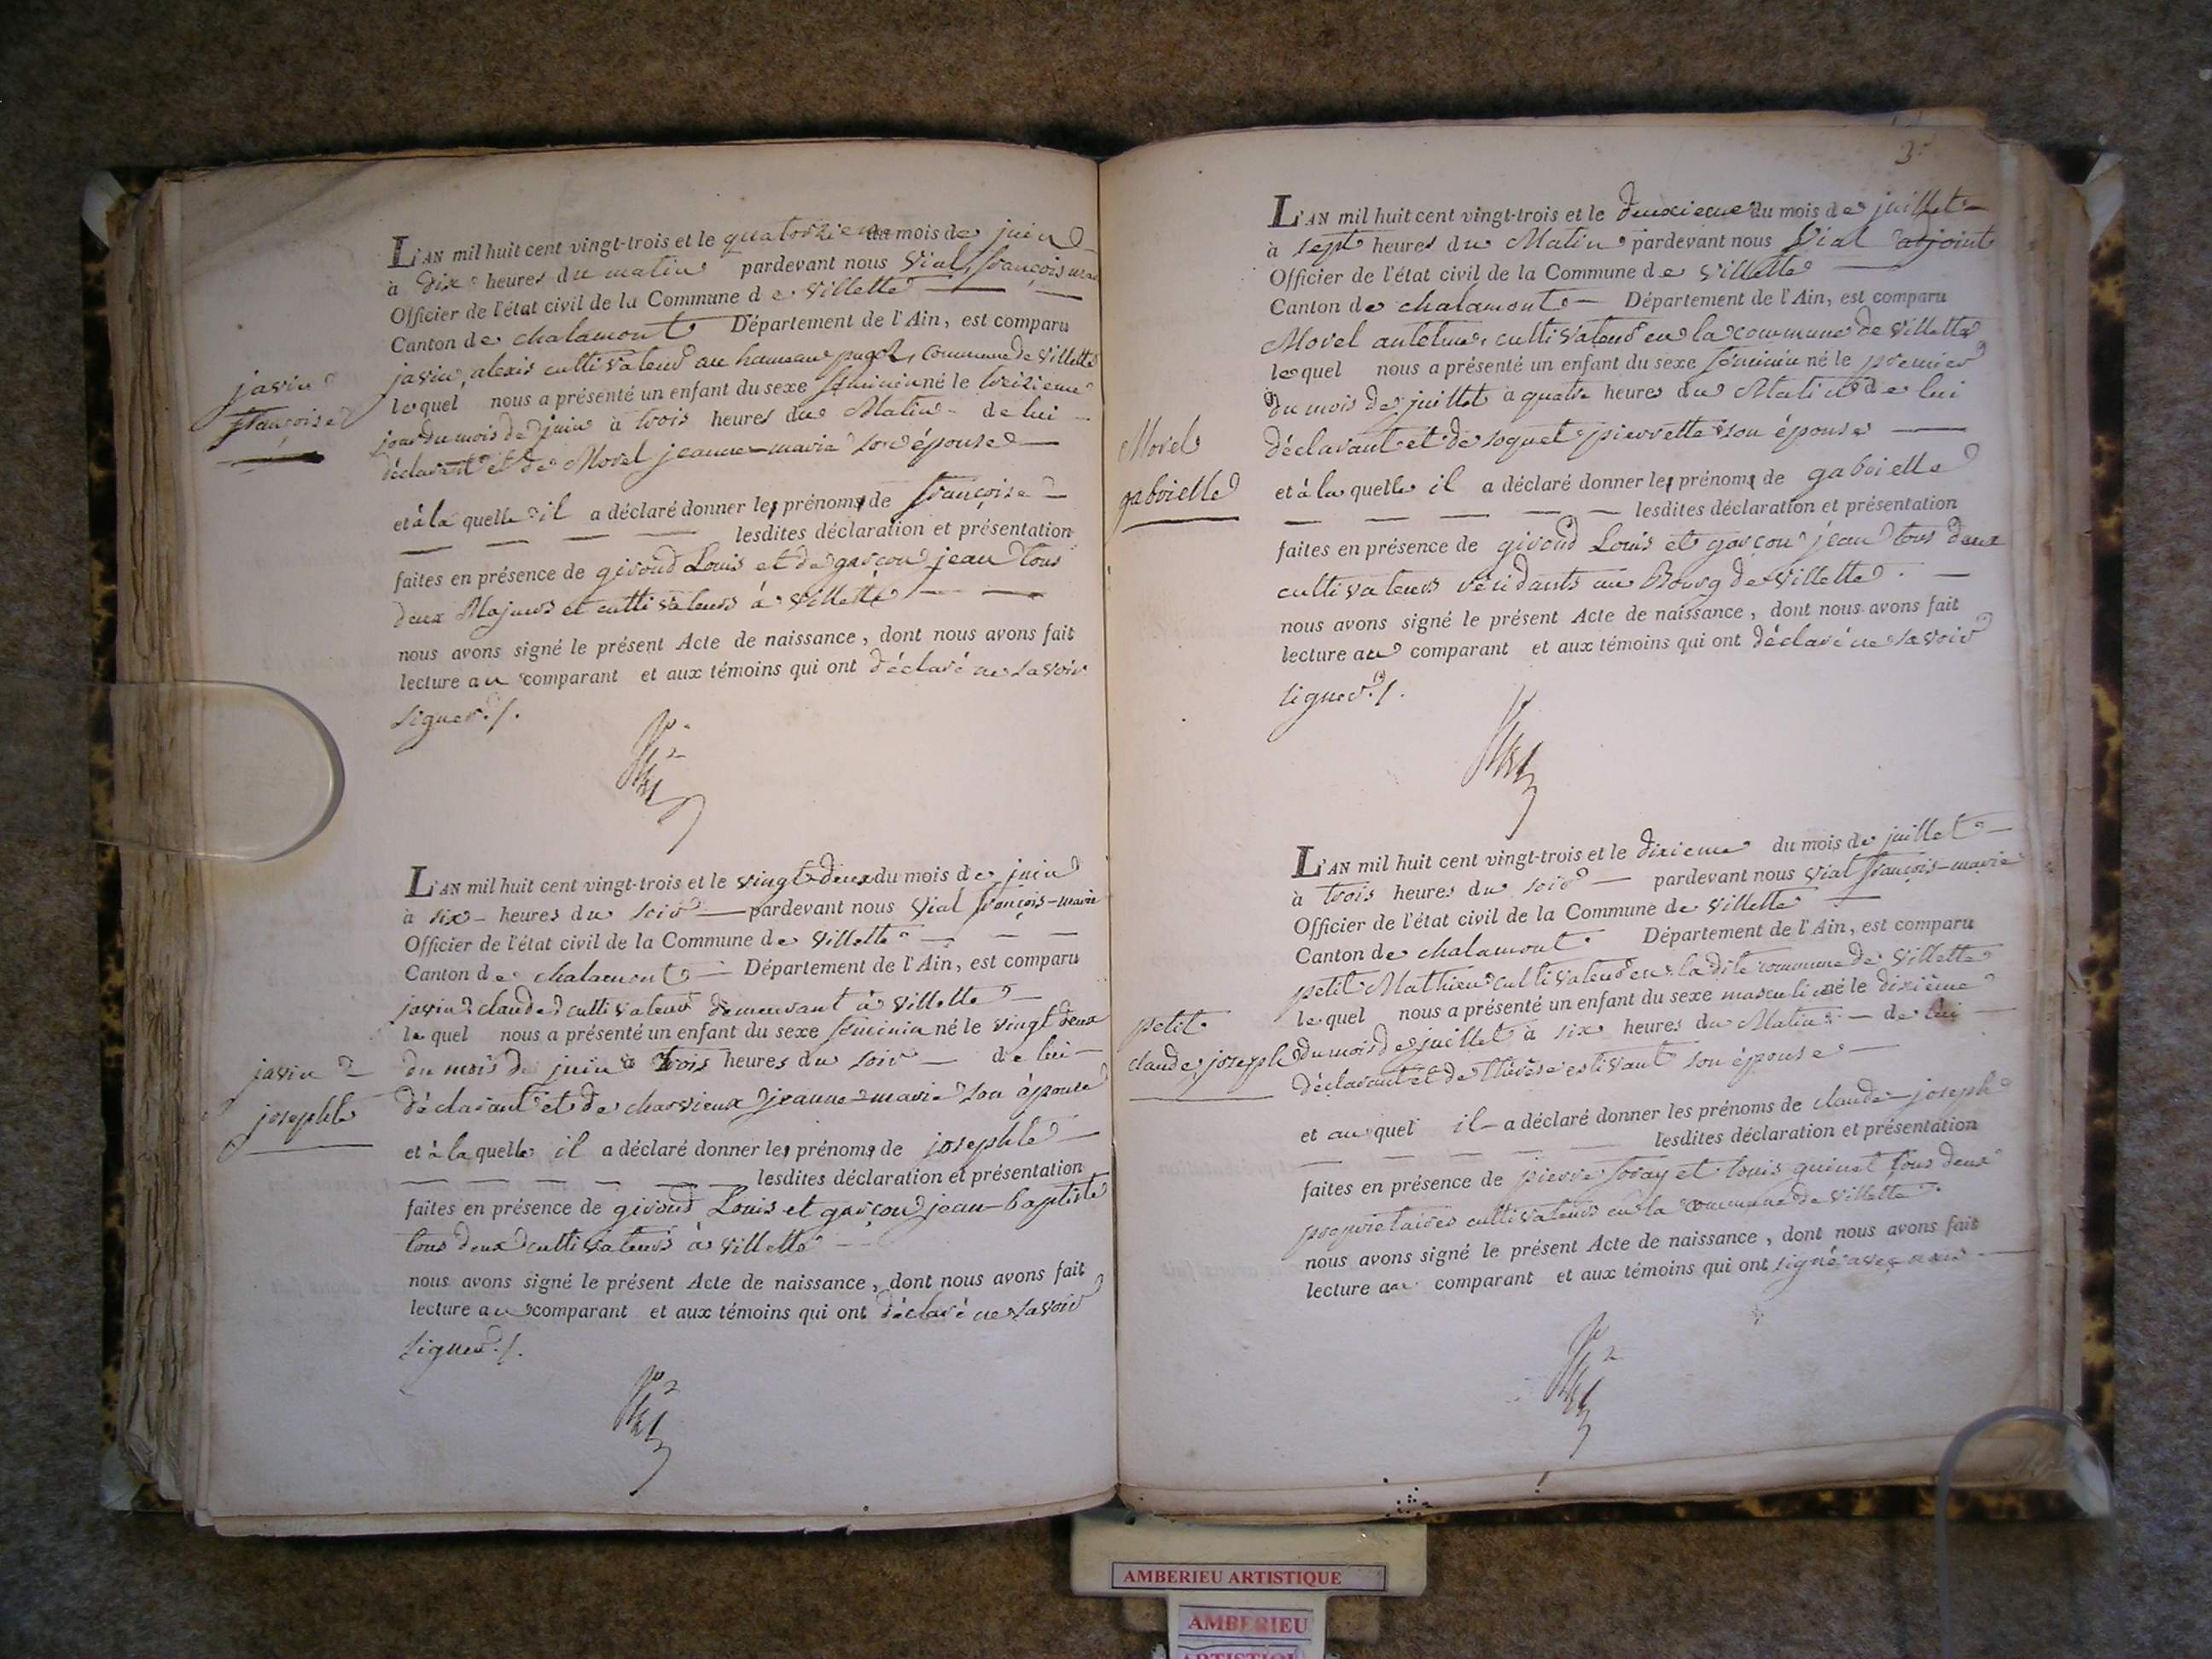 javin
françoise
L'AN mil huit cent vingt-trois et le quatorzieme du mois de juin
à dix heures du matin pardevant nous Vial, françois marie
Officier de l'état civil de la Commune de Villette
Canton de chalamont Département de l'Ain, est comparu
javin, alexis cultivateur au hameau commune de Villette
lequel nous a présenté un enfant du sexe féminin né le treizieme
jour du mois de juin à trois heures du Matin de lui
déclarant et de Morel jeanne-marie son épouse
et à la quelle il a déclaré donner les prénoms de françoise
lesdites déclaration et présentation
faites en présence de giroud Louis et de garçon jean tous
deux Majeurs et cultivateurs à Villette
nous avons signé le présent Acte de naissance, dont nous avons fait
lecture au comparant et aux témoins qui ont déclaré ne savoir
signer ./.
javin
josephte
L'AN mil huit cent vingt-trois et le vingt deux du mois de juin
à six heures du soir pardevant nous Vial françois-marie
Officier de l'état civil de la Commune de Villette
Canton de chalamont Département de l'Ain, est comparu
javin claude cultivateur demeurant à Villette
lequel nous a présenté un enfant du sexe féminin né le vingt deux
du mois de juin à trois heures du soir de lui
déclarant et de charvieux jeanne-marie son épouse
et à la quelle il a déclaré donner les prénoms de josephte
lesdites déclaration et présentation
faites en présence de giroud Louis et garçon jean-baptiste
tous deux cultivateurs à Villette
nous avons signé le présent Acte de naissance, dont nous avons fait
lecture au comparant et aux témoins qui ont déclaré ne savoir
signer ./.
3
Morel
gabrielle
L'AN mil huit cent vingt-trois et le deuxieme du mois de juillet
à sept heures du Matin pardevant nous Vial adjoint
Officier de l'état civil de la Commune de Villette
Canton de chalamont Département de l'Ain, est comparu
Morel antelme, cultivateur en la commune de Villette
lequel nous a présenté un enfant du sexe féminin né le premier
du mois de juillet à quatre heures du Matin de lui
déclarant et de soquet pierrette son épouse
et à la quelle il a déclaré donner les prénoms de gabrielle
lesdites déclaration et présentation
faites en présence de giroud Louis et garçon jean tous deux
cultivateurs résidants au Bourg de Villette
nous avons signé le présent Acte de naissance, dont nous avons fait
lecture au comparant et aux témoins qui ont déclaré ne savoir
signer ./.
petit
claude joseph
L'AN mil huit cent vingt-trois et le dixieme du mois de juillet
à trois heures du soir pardevant nous Vial françois-marie
Officier de l'état civil de la Commune de Villette
Canton de chalamont Département de l'Ain, est comparu
petit Mathieu cultivateur en la dite commune de Villette
lequel nous a présenté un enfant du sexe masculin né le dixième
du mois de juillet à six heures du Matin de lui
déclarant et de thérèse estivant son épouse
et au quel il a déclaré donner les prénoms de claude-joseph
lesdites déclaration et présentation
faites en présence de pierre foray et louis quinet tous deux
proprietaires cultivateurs en la commune de Villette
nous avons signé le présent Acte de naissance, dont nous avons fait
lecture au comparant et aux témoins qui ont signé avec nous
AMBERIEU ARTISTIQUE
AMBERIEU
ARTISTIQUE